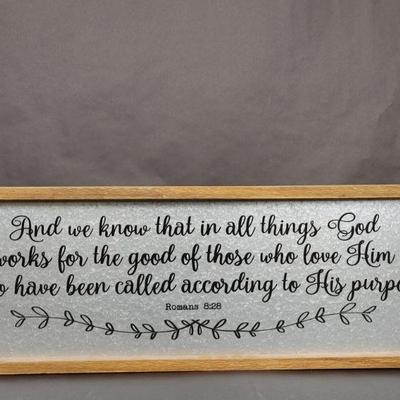 And we know that in all things God
works for the good of those who love Him
have been called according to His
Romans 8:28